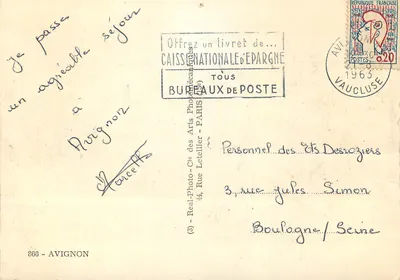 Je passe
un agréable séjour
à
Avignon
Offrez un livret de...
CAISSE NATIONALE D'EPARGNE
TOUS
BUREAUX DE POSTE
1963
VAUCLUSE
REPUBLIQUE FRANÇAISE
0,20
(3) - Real-Photo - Cie des Arts Photomécaniques
44, Rue Letellier - PARIS (15e)
Personnel des Ets Desroziers
3, rue Jules Simon
Boulogne/Seine
866 - AVIGNON